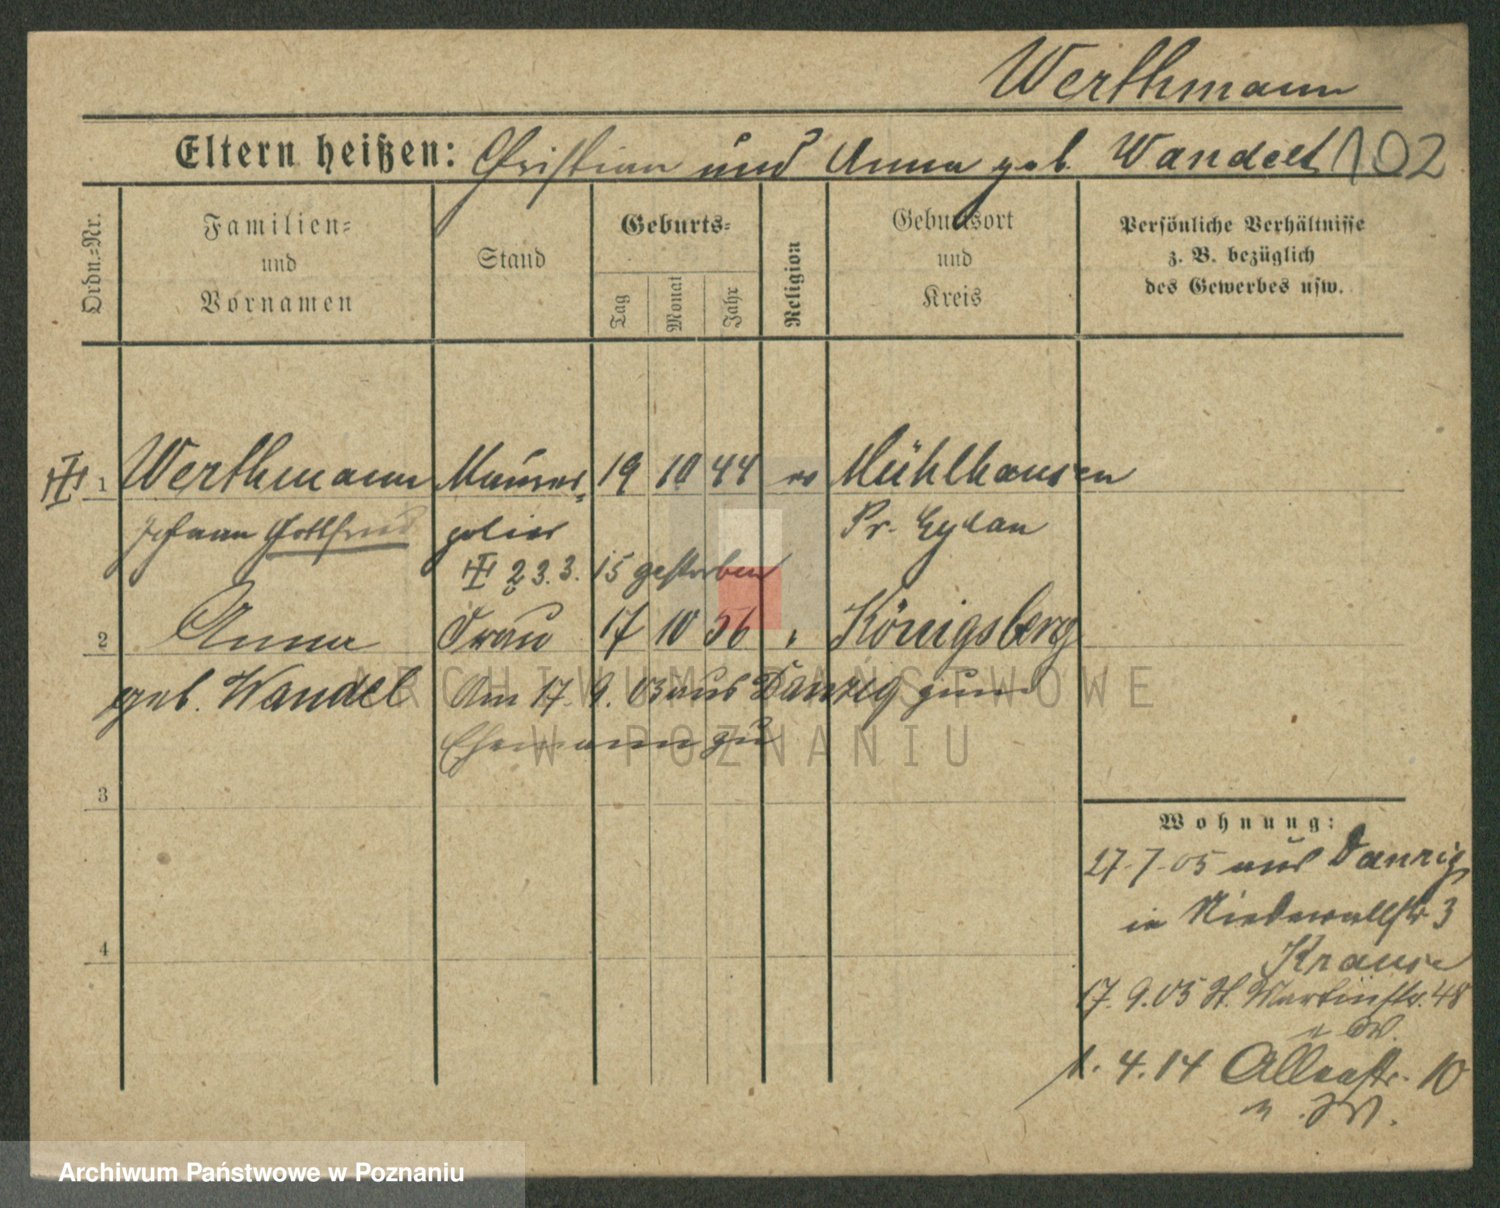 Werthmann
Eltern heißen: Christian und Anna geb. Wandelt 102
Ordn.-Nr.
Familien- und Vornamen
Stand
Geburts-
Tag
Monat
Jahr
Religion
Geburtsort und Kreis
Persönliche Verhältnisse
z. B. bezüglich
des Gewerbes usw.
1 Werthmann Maurer- 19 10 44 ev Mühlhausen
Johann Gottfried polier Pr. Eylau
23.3.15 gestorben
2 Anna Frau 17 10 56 Königsberg
geb. Wandel Am 17. 9. 05 aus Danzig zum
Ehemann zu
3
4
Wohnung:
27-7-05 aus Danzig
in Niederwallstr 3
Krause
17. 9. 05 St. Martinstr. 48
1. 4. 14 10
ARCHIWUM PAŃSTWOWE
W POZNANIU
Archiwum Państwowe w Poznaniu